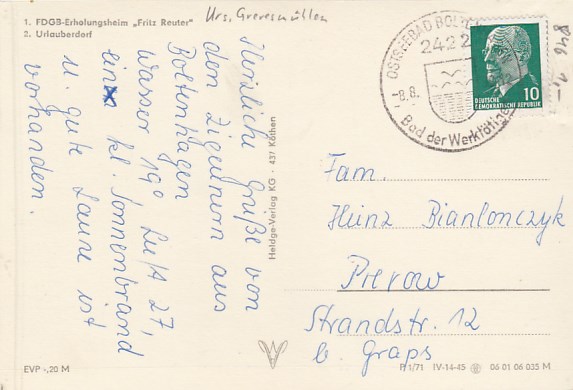 1. FDGB-Erholungsheim „Fritz Reuter"
2. Urlauberdorf
Krs. Grevesmühlen
Herzliche Grüße von
den Zigeunern aus
Boltenhagen
Wasser 19°, Luft 27,
ein kl. Sonnenbrand
u. gute Laune ist
vorhanden.
EVP -,20 M
Heldge-Verlag KG · 437 Köthen
OSTSEEBAD
2422
-8.8.
Bad der Werktätigen
10
DEUTSCHE
DEMOKRATISCHE REPUBLIK
846 1,-
Fam.
Heinz Bianlonczyk
Prerow
Strandstr. 12
b. Graps
P 1/71 IV-14-45 06 01 06 035 M